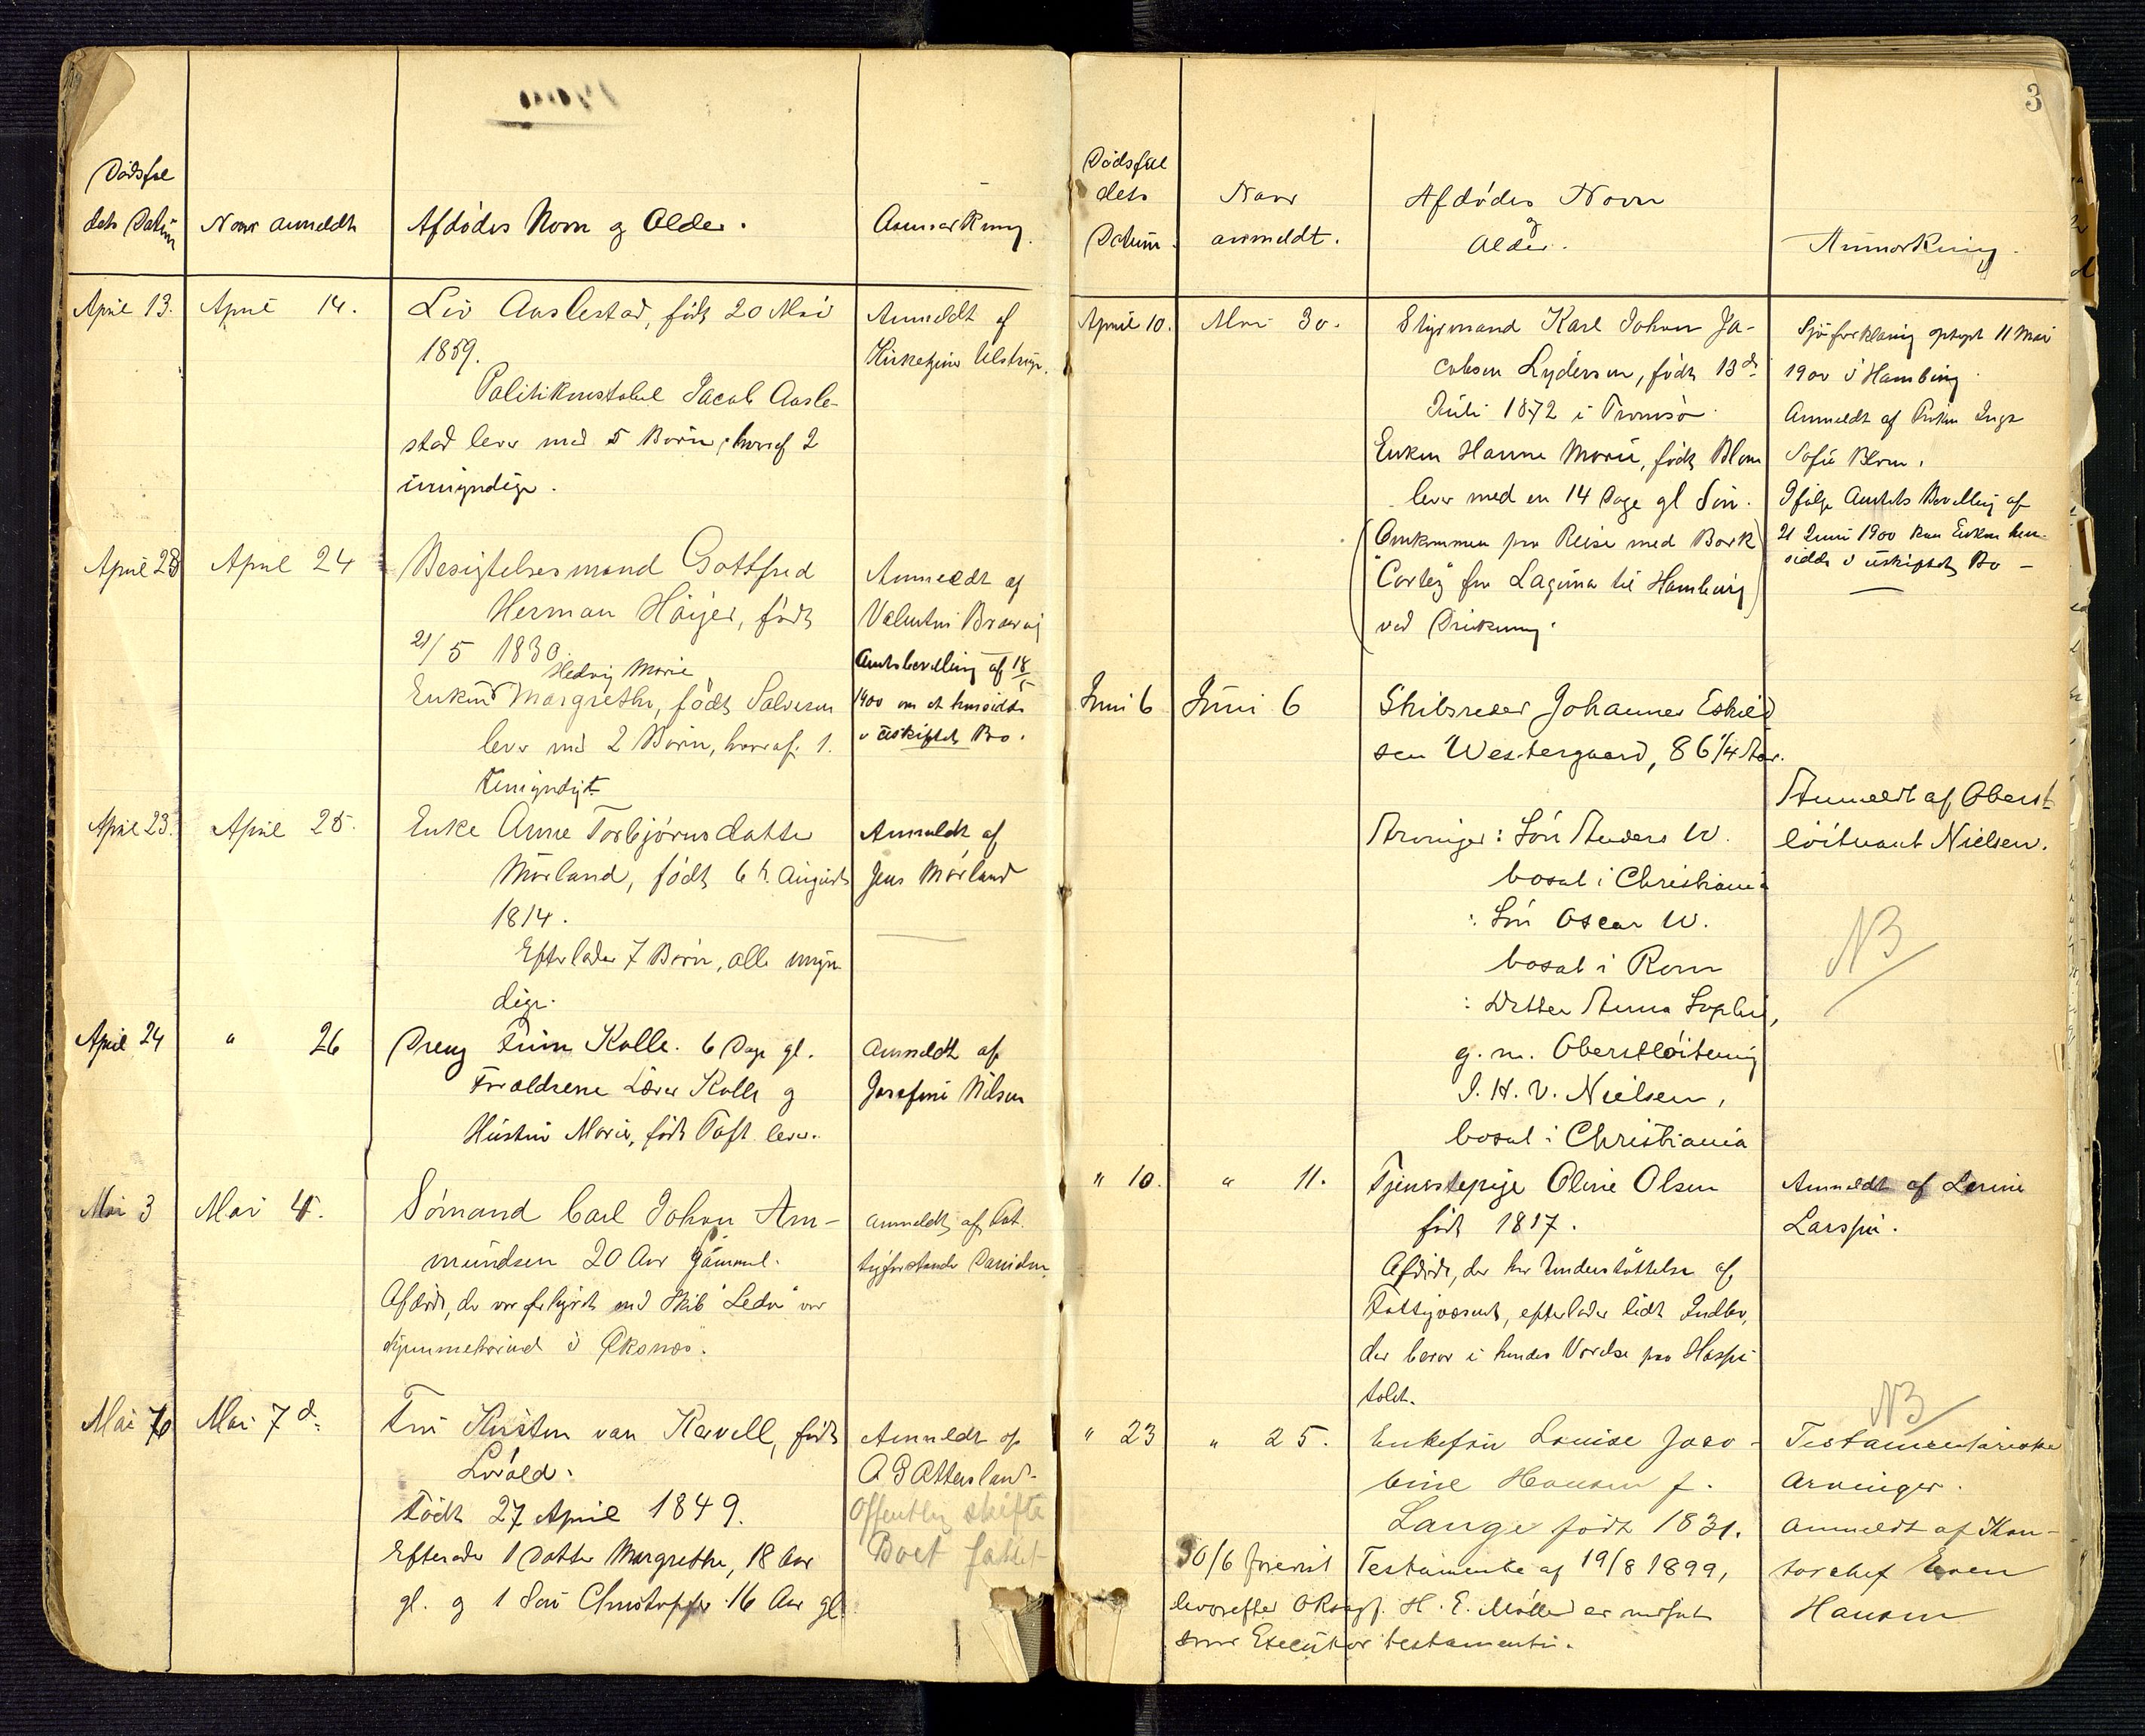 1900
Dödsfal
dets Datum
Naar anmeldt
Afdödes Navn og Alder.
Anmærkning.
April 13.
April 14.
Liv Aaslestad, födt 20 Mai
1859.
Politikonstabel Jacob Aasle-
stad lever med 5 Börn, hvoraf 2
umyndige.
Anmeldt af
Kirketjener Ulstrup.
April 23
April 24
Besigtelsesmand Gottfred
Herman Höyer, födt
21/5 1830.
Hedvig Marie
Enken Margrethe, födt Salvesen
lever med 2 Börn, hvoraf 1.
umyndigt
Anmeldt af
Valentin
Amtsbevilling af 18/5
1900 om at hensidde
i uskiftet Bo.
April 23.
April 25.
Enke Anne Torbjörnsdatter
Mörland, födt 6 h. August
1814.
Efterlader 7 Börn, alle myn-
dige.
Anmeldt af
Jens Mörland
April 24
" 26
Dreng Finn Kolle. 6 Dage gl.
Forældrene Lærer Kolle og
Hustru Marie, födt Toft lever.
Anmeldt af
Josefine Nilsen
Mai 3
Mai 4.
Sömand Carl Johan Am-
mundsen 20 Aar gammel.
Afdöde, der var forhyret med Skib "Leda" var
hjemmehörende i Öksnes.
anmeldt af Fat-
tigforstander Danielsen
Mai 7
Mai 7 d.
Fru Kirsten van Kervell, födt
Lövold.
Födt 27 April 1849.
Efterlader 1 Datter Margrethe, 18 Aar
gl. og 1 Sön Christopher 16 Aar gl.
Anmeldt af
A G Ottersland.
Offentlig skifte
Boet fattet
3
Dödsfal
dets
Datum.
Naar
anmeldt.
Afdödes Navn
og
Alder.
Anmærkning.
April 10.
Mai 30.
Styrmand Karl Johan Ja-
cobsen Lydersen, födt 13 de
Juli 1872 i Tromsö.
Enken Hanne Marie, födt Blom
lever med en 14 Dage gl Sön.
(Omkommen paa Reise med Bark
"Cortez" fra Laguna til Hamburg)
ved Drukning.
Sjöforklaring optaget 11 Mai
1900 i Hamburg.
Anmeldt af Fröken Inga
Sofie Blom.
Ifölge Amtets Bevilling af
21 Juni 1900 kan Enken hen-
sidde i uskiftet Bo –
Juni 6
Juni 6
Skibsreder Johannes Eskild
sen Westergaard, 86 1/4 Aar.
Arvinger: Sön Anders W.
bosat i Christiania
: Sön Oscar W.
bosat i Rom
: Datter Anna Sophie,
g. m. Oberstlöitenant
I. H. V. Nielsen,
bosat i Christiania
Anmeldt af Oberst
löitnant Nielsen.
NB
" 10.
" 11.
Tjenestepige Oline Olsen
födt 1817.
Afdöde, der har Understöttelse af
Fattigvæsenet, efterlader lidt Indbo,
der beror i hendes Værelse paa Hospi
talet.
Anmeldt af Lovine
Larssen.
NB
" 23
" 25.
Enkefru Louise Jaco-
bine Hansen f.
Lange födt 1831.
30/6 fremvist Testamente af 19/8 1899,
hvorefter O. Rsagf. H. E. Möller er indsat
som Executor testamenti.
Testamentariske
Arvinger.
anmeldt af Kon-
torchef Even
Hansen